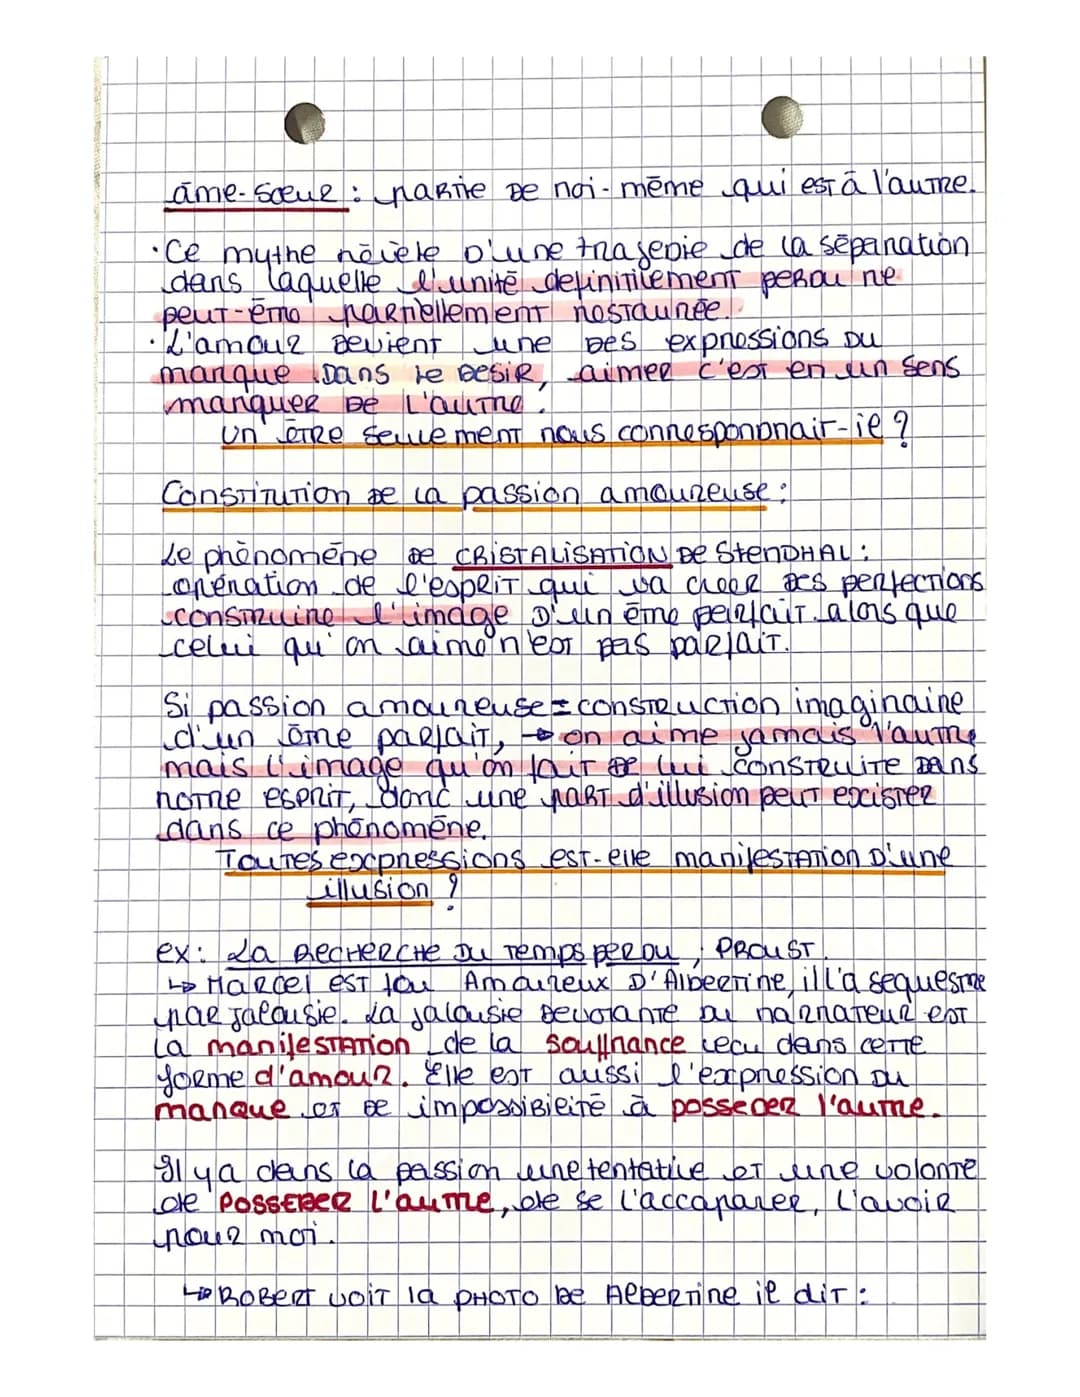 âme-sœur : partie de moi-même qui est à l'autre.
·Ce mythe révèle d'une tragedie de la séparation
dans laquelle l'unité definitivement perdu ne
peut-être partiellement restaurée.
·L'amour devient une des expressions du
manque dans le desir, aimer c'est en un sens
manquer de l'autre.
Un être seulement nous correspondrait-il ?
Constitution de la passion amoureuse :
Le phénomène de CRISTALISATION de STENDHAL :
opération de l'esprit qui va créer des perfections
construire l'image d'un être parfait alors que
celui qu'on aime n'est pas parfait.
Si passion amoureuse = construction imaginaire
d'un être parfait, → on aime jamais l'autre
mais l'image qu'on fait de lui construite dans
notre esprit, donc une part d'illusion peut exister
dans ce phénomène.
Toutes expressions est-elle manifestation d'une
illusion ?
ex : La Recherche du temps perdu, PROUST.
↳ Marcel est fou Amoureux d'Albertine, il l'a sequestre
par jalousie. La jalousie devorante du narrateur est
la manifestation de la souffrance vecu dans cette
forme d'amour. Elle est aussi l'expression du
manque et de impossibilité à posseder l'autre.
Il y a dans la passion une tentative et une volonte
de posseder l'autre, de se l'accaparer, l'avoir
pour moi.
↳ Robert voit la photo de Albertine il dit :